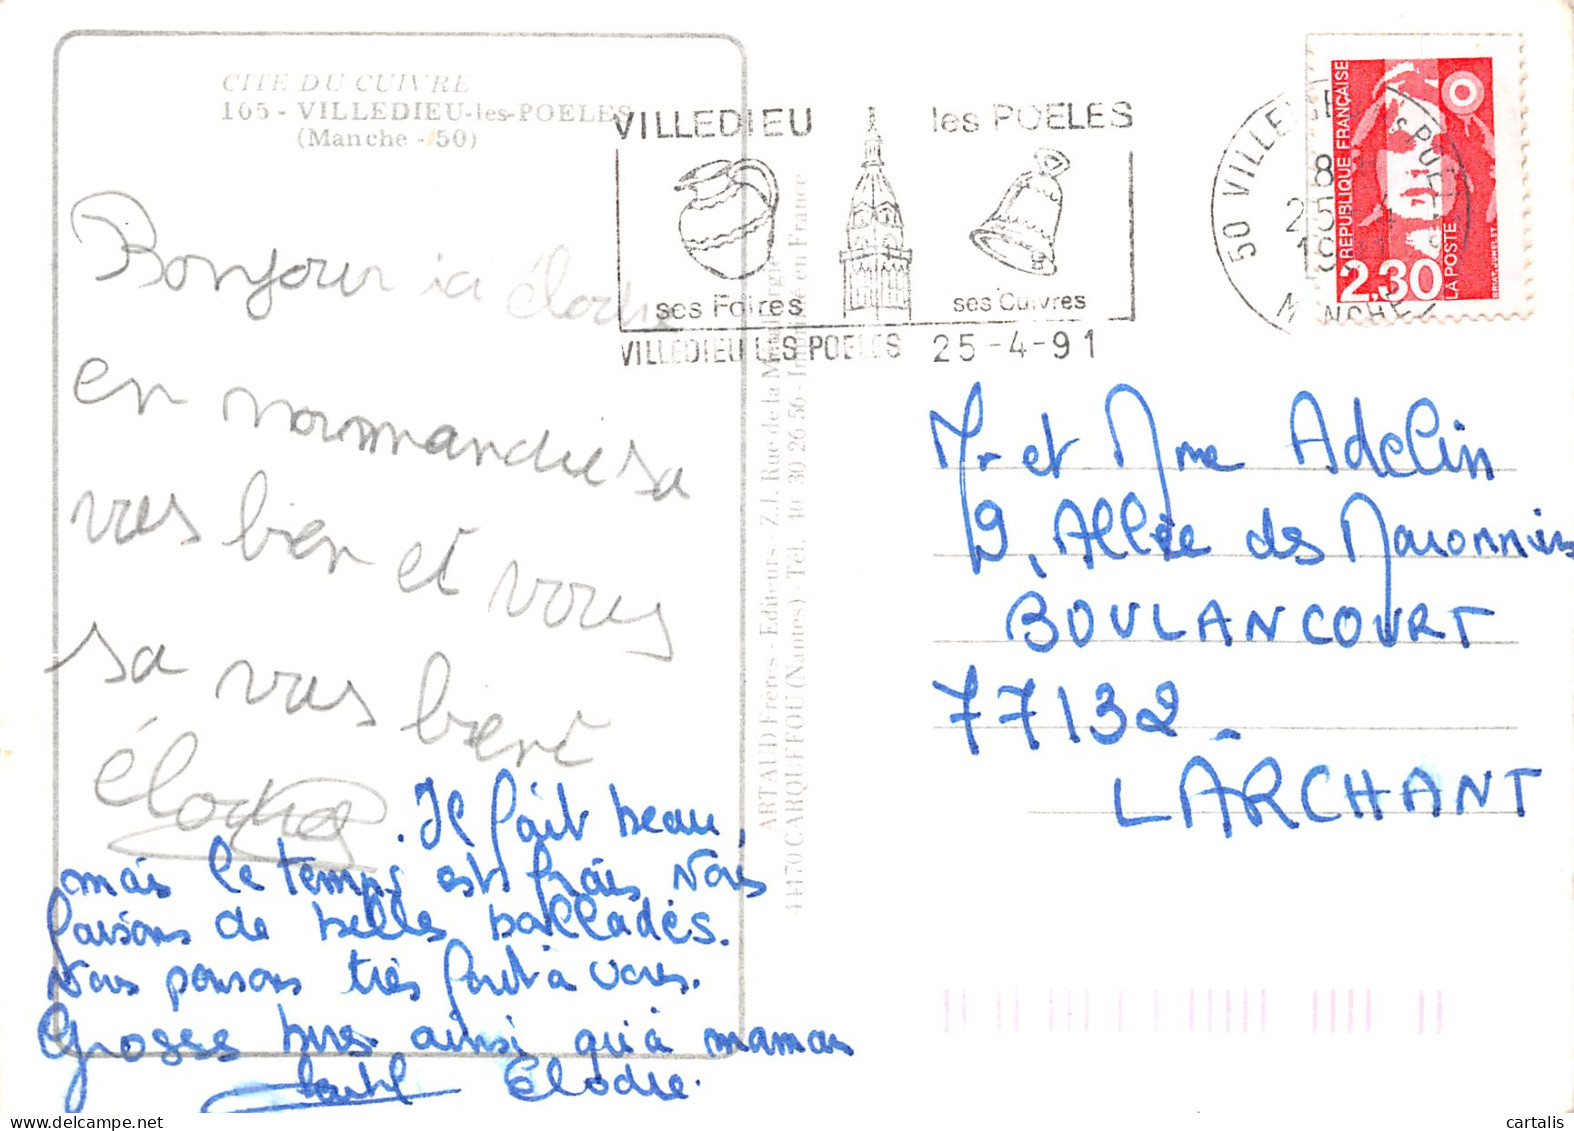 CITE DU CUIVRE
105 - VILLEDIEU-les-POELES
(Manche - 50)
VILLEDIEU les POELES
ses Foires ses Cuivres
VILLEDIEU LES POELES 25-4-91
50 VILLEDIEU
8
25-4
19
MANCHE
RÉPUBLIQUE FRANÇAISE
2,30
LA POSTE
Bonjour ici élodie
en normandie sa
vas bien et vous
sa vas bien
élodie
. Il fait beau
mais le temps est frais Nous
faisons de belles ballades.
Nous pensons très fort à vous.
Grosses bises ainsi qu'à maman
Elodie.
ARTAUD Frères - Editeurs - Z.I. Rue de la Métallurgie
44470 CARQUEFOU (Nantes) - Tél. 40 30 26 56 - Imprimé en France
Mr et Mme Adelin
9, Allée des Maronniers
BOULANCOURT
77132
LARCHANT
cartalis.com